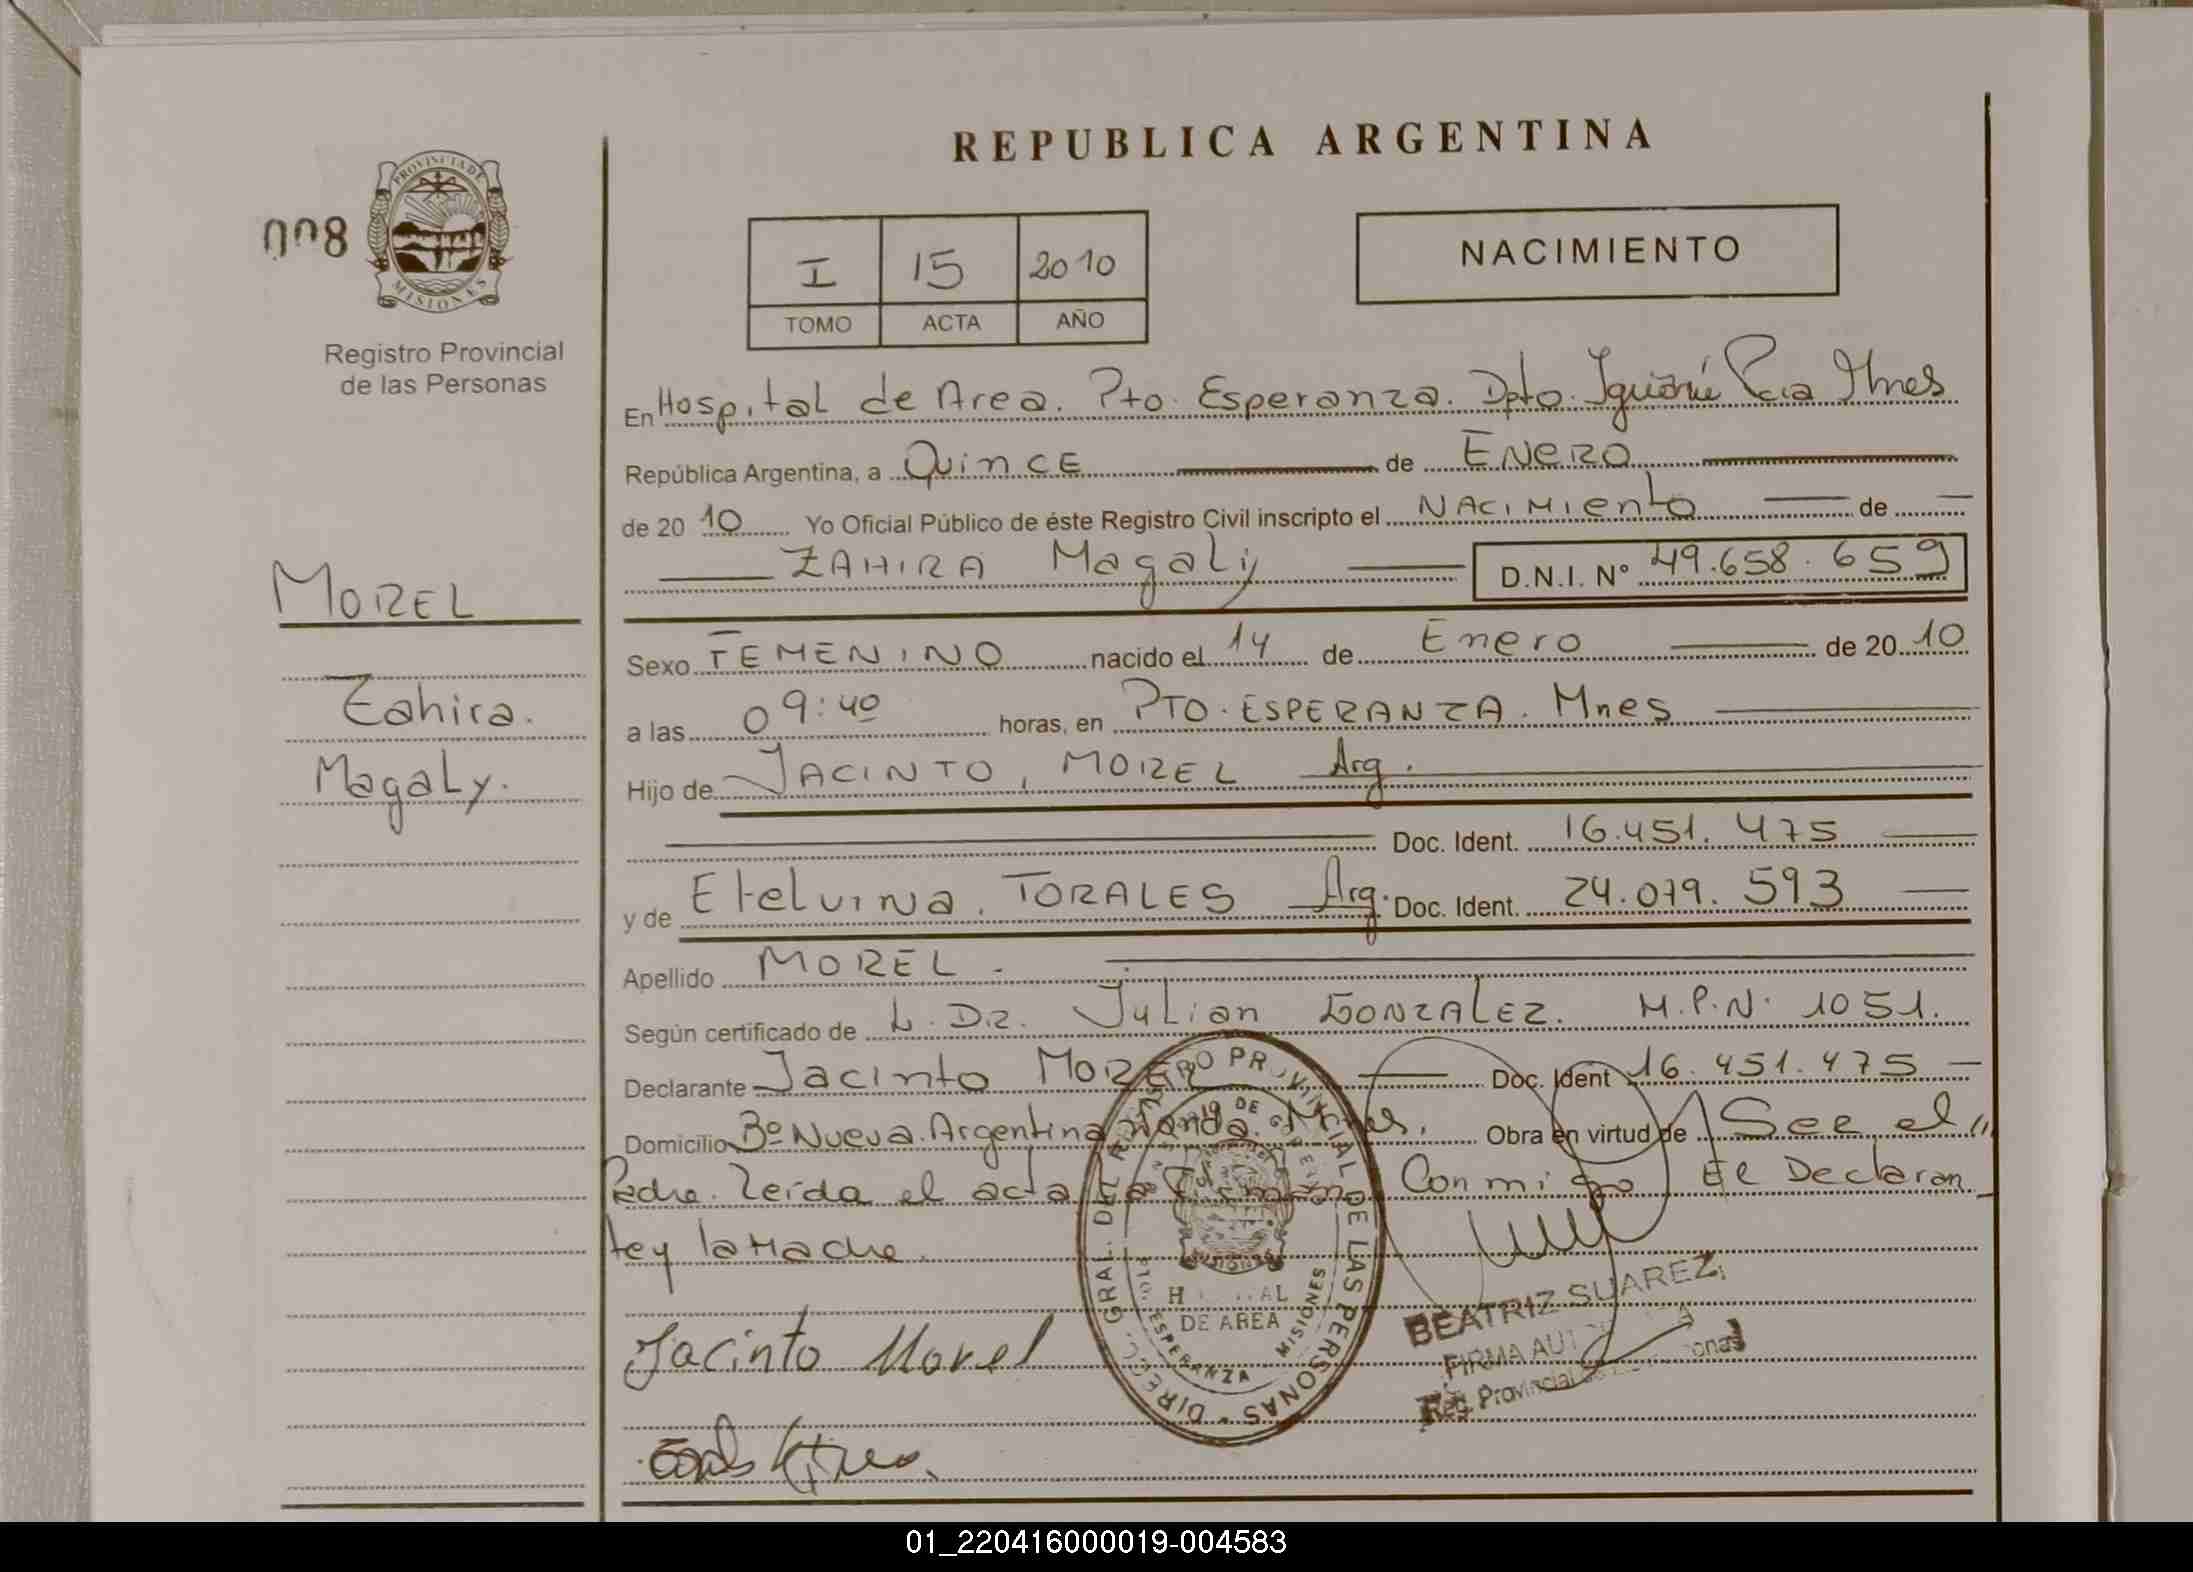 REPUBLICA ARGENTINA
008
PROVINCIA DE
MISIONES
Registro Provincial
de las Personas
I 15 2010
TOMO ACTA AÑO
NACIMIENTO
En Hospital de Area. Pto. Esperanza. Dpto. Iguazú Pcia Mnes
República Argentina, a Quince de Enero
de 20 10 Yo Oficial Público de éste Registro Civil inscripto el Nacimiento de
ZAHIRA Magaly D.N.I. Nº 49.658.659
MOREL
Zahira.
Magaly.
Sexo FEMENINO nacido el 14 de Enero de 20 10
a las 09:40 horas, en PTO. ESPERANZA. Mnes
Hijo de JACINTO, MOREL Arg.
Doc. Ident. 16.451.475
y de Etelvina. TORALES Arg. Doc. Ident. 24.079.593
Apellido MOREL.
Según certificado de L. DR. Julian GONZALEZ. M.P.N. 1051.
Declarante Jacinto MOREL Doc. Ident 16.451.475
Domicilio Bº Nueva Argentina Wanda. Mnes. Obra en virtud de See el
Padre. Leida el acta la Firman Conmigo El Declaran
te y la Madre.
DIREC. GRAL. DEL REGISTRO PROVINCIAL DE LAS PERSONAS
DE AREA
ESPERANZA MISIONES
BEATRIZ SUAREZ
FIRMA
Reg. Provincial
Jacinto Morel
01_220416000019-004583